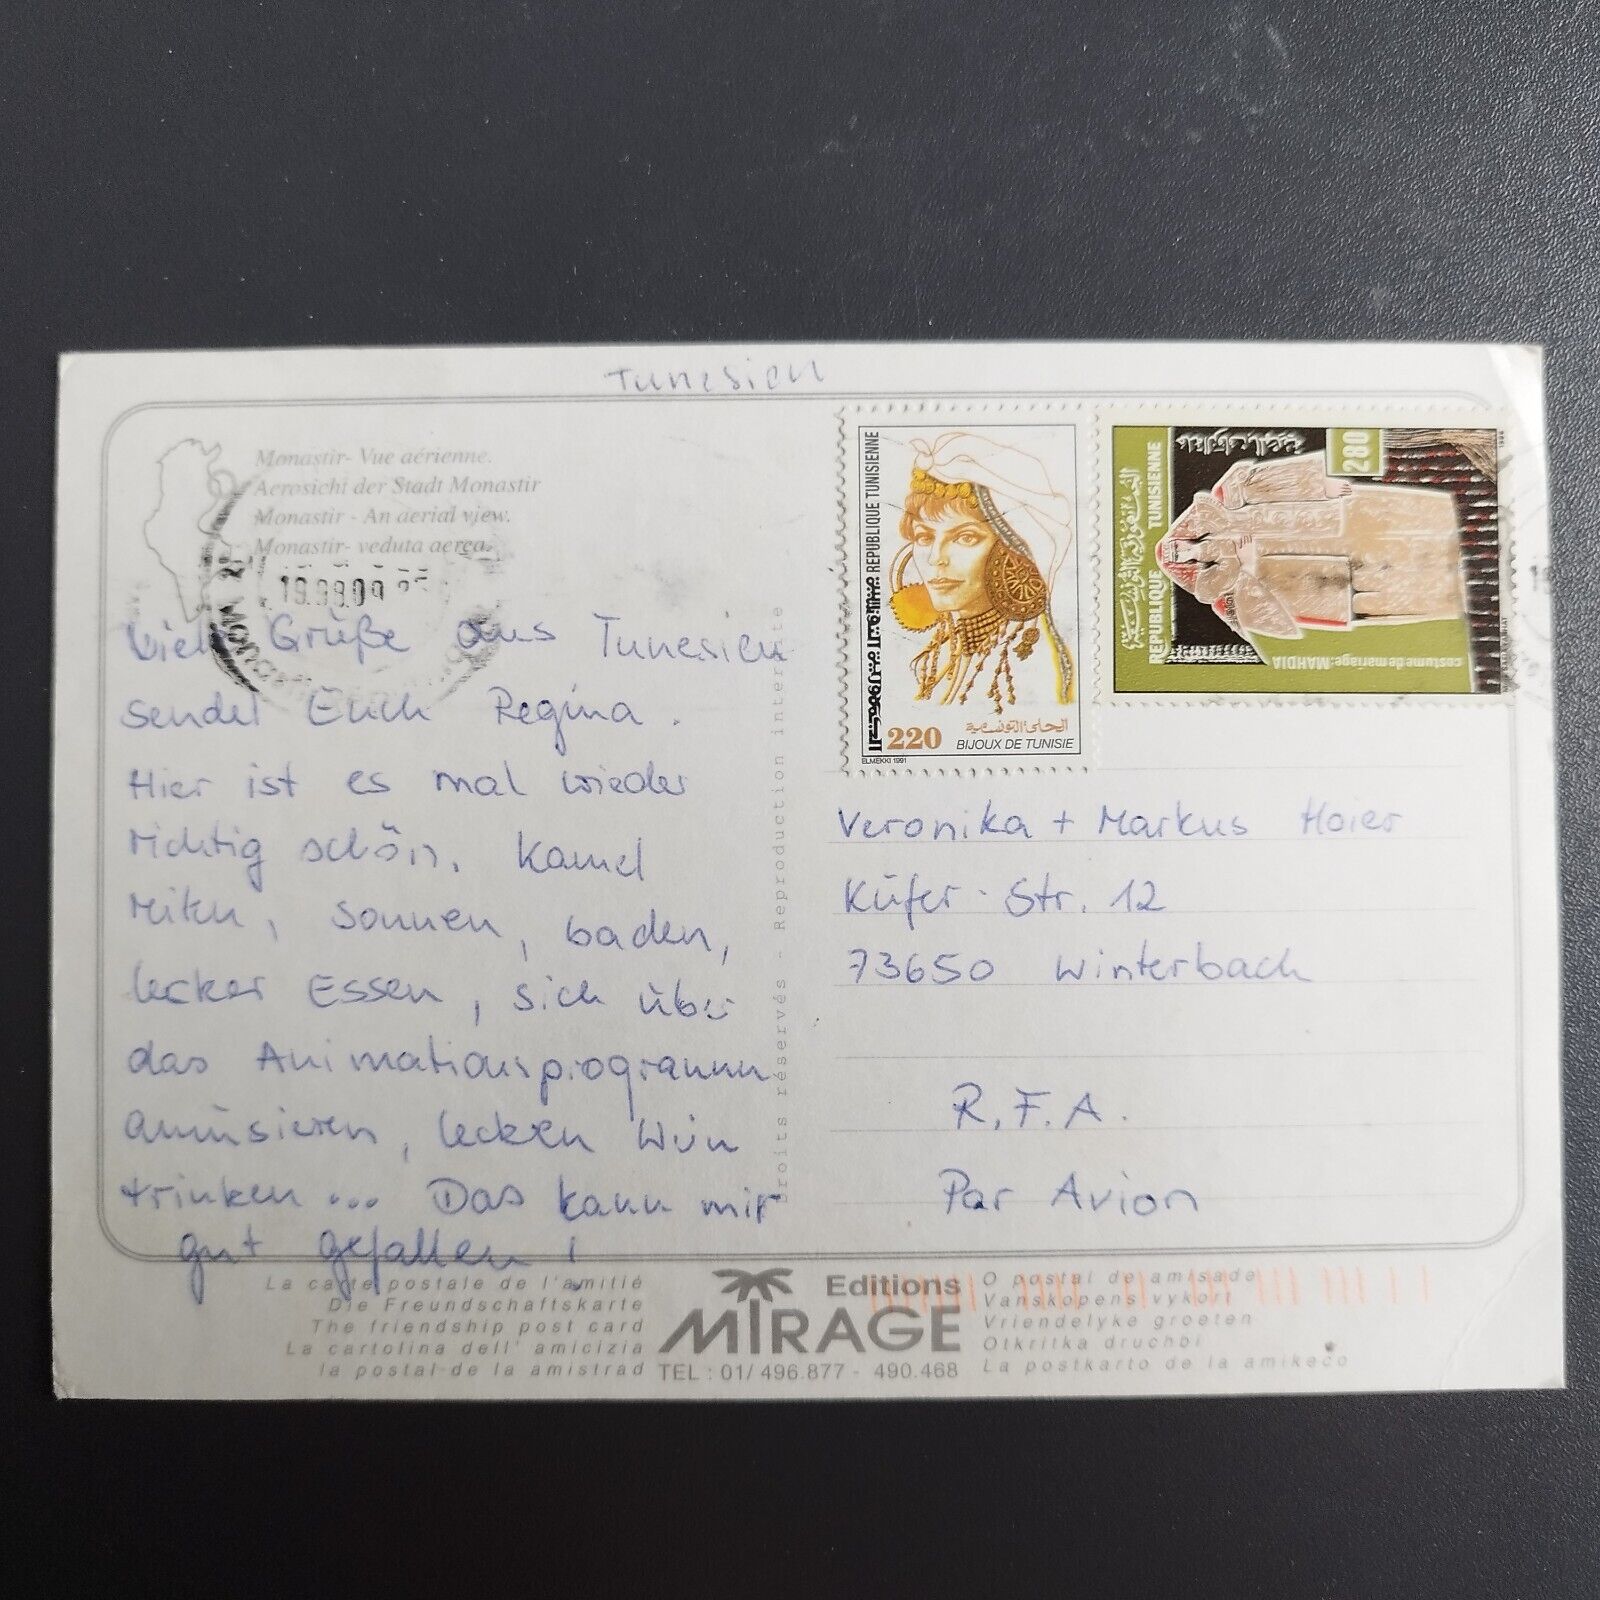 Tunesien
Monastir- Vue aérienne.
Aerosichi der Stadt Monastir
Monastir - An aerial view.
Monastir- veduta aerea.
19.99.09
Viele Grüße aus Tunesien
sendet Euch Regina.
Hier ist es mal wieder
richtig schön. Kamel
reiten, sonnen, baden,
lecker Essen, sich über
das Animationsprogramm
amüsieren, leckren Wein
trinken... Das kann mir
gut gefallen!
Droits réservés - Reproduction interdite
REPUBLIQUE TUNISIENNE
الجمهورية التونسية
220
الحلي التونسية
BIJOUX DE TUNISIE
ELMEKKI 1991
الجمهورية التونسية
REPUBLIQUE TUNISIENNE
280
costume de mariage: MAHDIA
Veronika + Markus Hoier
Küfer-Str. 12
73650 Winterbach
R.F.A.
Par Avion
La carte postale de l'amitié
Die Freundschaftskarte
The friendship post card
La cartolina dell' amicizia
la postal de la amistrad
Editions
MIRAGE
TEL : 01/ 496.877 - 490.468
O postal de amisade
Vanskopens vykort
Vriendelyke groeten
Otkritka druchbi
La postkarto de la amikeco